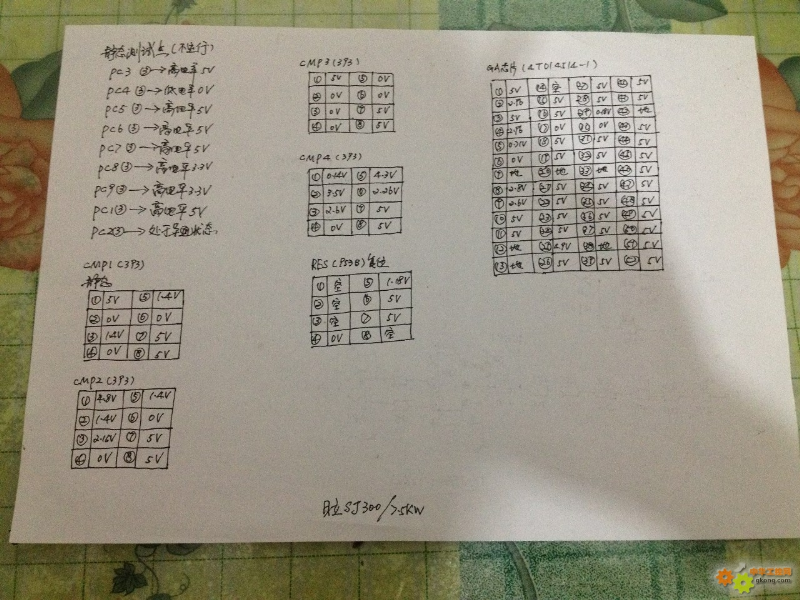 静态测试点(不运行)
PC3 ③→高电平5V
PC4 ③→低电平0V
PC5 ③→高电平5V
PC6 ③→高电平5V
PC7 ③→高电平5V
PC8 ③→高电平3.3V
PC9 ③→高电平3.3V
PC1 ③→高电平5V
PC2 ③→处于导通状态.
CMP1 (393)
静态
① 5V ⑤ 1.4V
② 0V ⑥ 0V
③ 1.4V ⑦ 5V
④ 0V ⑧ 5V
CMP2 (393)
① 4.8V ⑤ 1.4V
② 1.4V ⑥ 0V
③ 2.15V ⑦ 5V
④ 0V ⑧ 5V
CMP3 (393)
① 5V ⑤ 0V
② 0V ⑥ 0V
③ 0V ⑦ 5V
④ 0V ⑧ 5V
CMP4 (393)
① 0.14V ⑤ 4.3V
② 3.5V ⑥ 2.26V
③ 2.6V ⑦ 5V
④ 0V ⑧ 5V
RES (P53B) 复位
① 空 ⑤ 1.18V
② 空 ⑥ 5V
③ 空 ⑦ 5V
④ 0V ⑧ 空
GA芯片
① 5V 空 5V 5V
② 5V 5V 5V
③ 5V 5V 地
④ 0V 0V 5V
⑤ 5V 5V 5V
⑥ 0V 5V 5V 5V
⑦ 地 地 地 5V
⑧ 2.8V 5V 5V 5V
⑨ 2.6V 5V 5V 5V
⑩ 5V 5V 5V 5V
⑪ 5V 5V 5V 5V
⑫ 地 4.9V 地 5V
⑬ 地 5V 5V 5V
日立SJ300/7.5KW
gkong.com